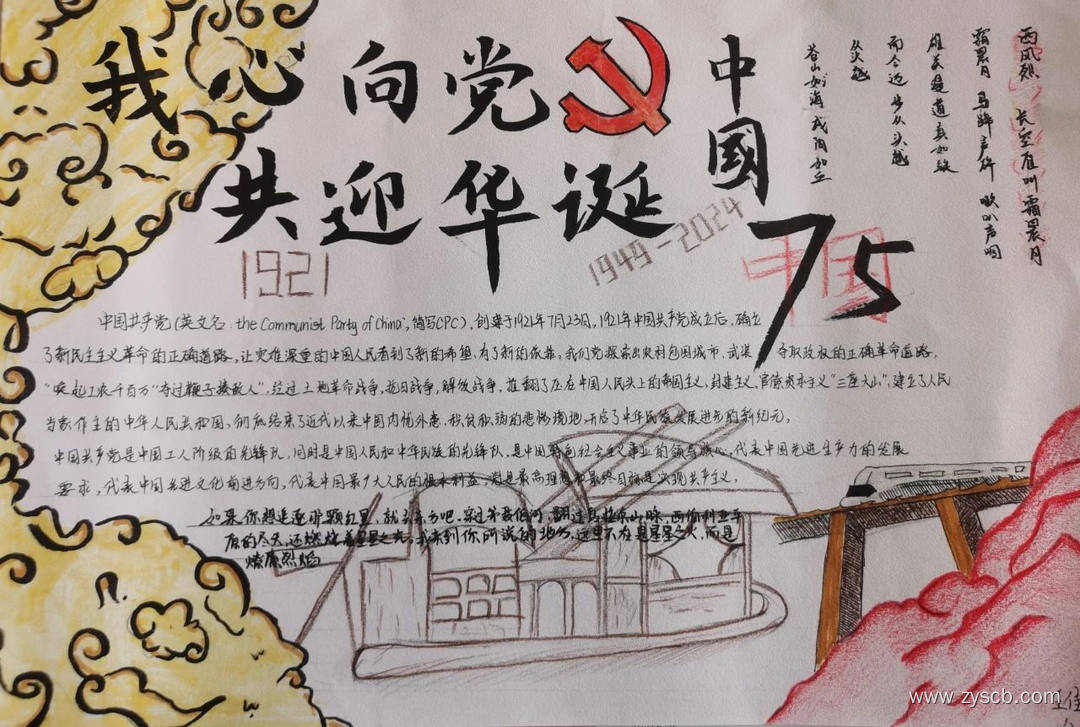 我心向党
共迎华诞
中國
75
1921
1949-2024
中国
西风烈 长空雁叫霜晨月
霜晨月 马蹄声碎 喇叭声咽
雄关漫道真如铁
而今迈步从头越
从头越
苍山如海 残阳如血
中国共产党(英文名:the Communist Party of China,简写CPC),创建于1921年7月23日,1921年中国共产党成立后,确立
了新民主主义革命的正确道路,让灾难深重的中国人民看到了新的希望,有了新的依靠。我们党探索出农村包围城市、武装 夺取政权的正确革命道路,
"唤起工农千百万""夺过鞭子揍敌人",经过土地革命战争,抗日战争,解放战争,推翻了压在中国人民头上的帝国主义,封建主义,官僚资本主义"三座大山",建立了人民
当家作主的中华人民共和国,彻底结束了近代以来中国内忧外患、积贫积弱的悲惨境地,开启了中华民族发展进步的新纪元。
中国共产党是中国工人阶级的先锋队,同时是中国人民和中华民族的先锋队,是中国特色社会主义事业的领导核心,代表中国先进生产力的发展
要求,代表中国先进文化前进方向,代表中国最广大人民的根本利益,党是最高理想和最终目标是实现共产主义。
如果你想追逐那颗红星,就去东方吧,穿过第聂伯河,翻过乌拉尔山脉,西伯利亚平
原的尽头,还燃烧着星星之火。我来到你所说的地方,这里不在是星星之火,而是
燎原烈焰
www.zyscb.com